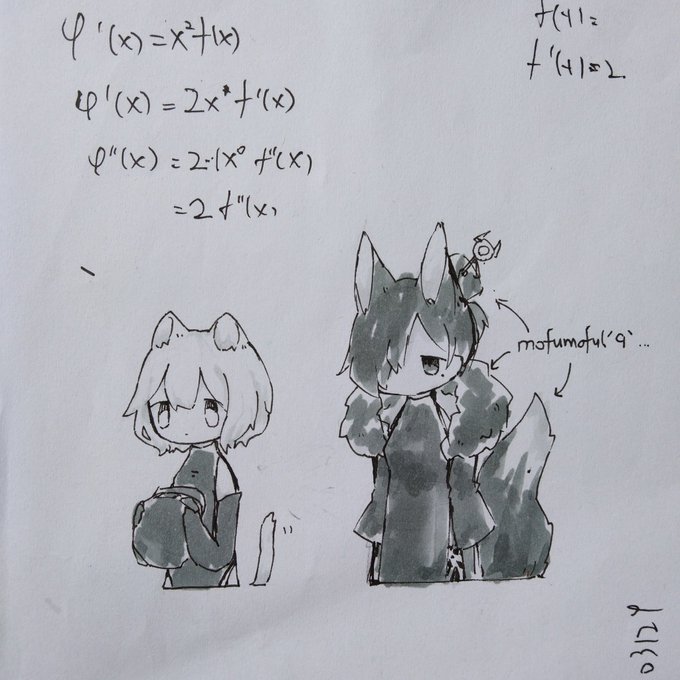 φ'(x) = x²f(x)
φ'(x) = 2x* f'(x)
φ''(x) = 2·1x⁰ f''(x)
= 2 f''(x)
f(4)=
f'(4)=2
mofumofu(´q`...